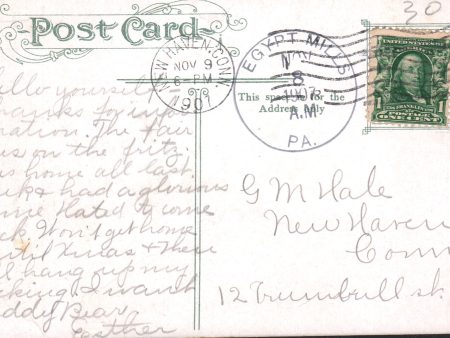 30
Post Card
NEW HAVEN, CONN.
NOV 9
6-PM
1907
EGYPT MILLS
NOV
8
1907
A.M
PA.
UNITED STATES OF AMERICA
FRANKLIN
POSTAGE
ONE CENT
This space is for the
Address Only
Hello yourself-
Thanks for
The Fair
was on the fritz.
Was home all last
week & had a glorious
time Hated to come
back Won't get home
until Xmas & then
I'll hang up my
stocking I want
Teddy Bear.
Esther
G M Hale
New Haven
Conn
12 Trumbull st